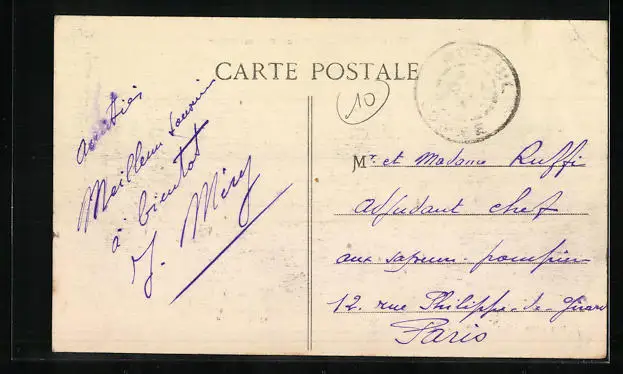 CARTE POSTALE
10
amitiés
Meilleur souvenir
à bientôt
J. Méry
Mr. et Madame Ruffi
adjudant chef
aux sapeurs-pompiers
12. rue Philippe-de-Girard
Paris